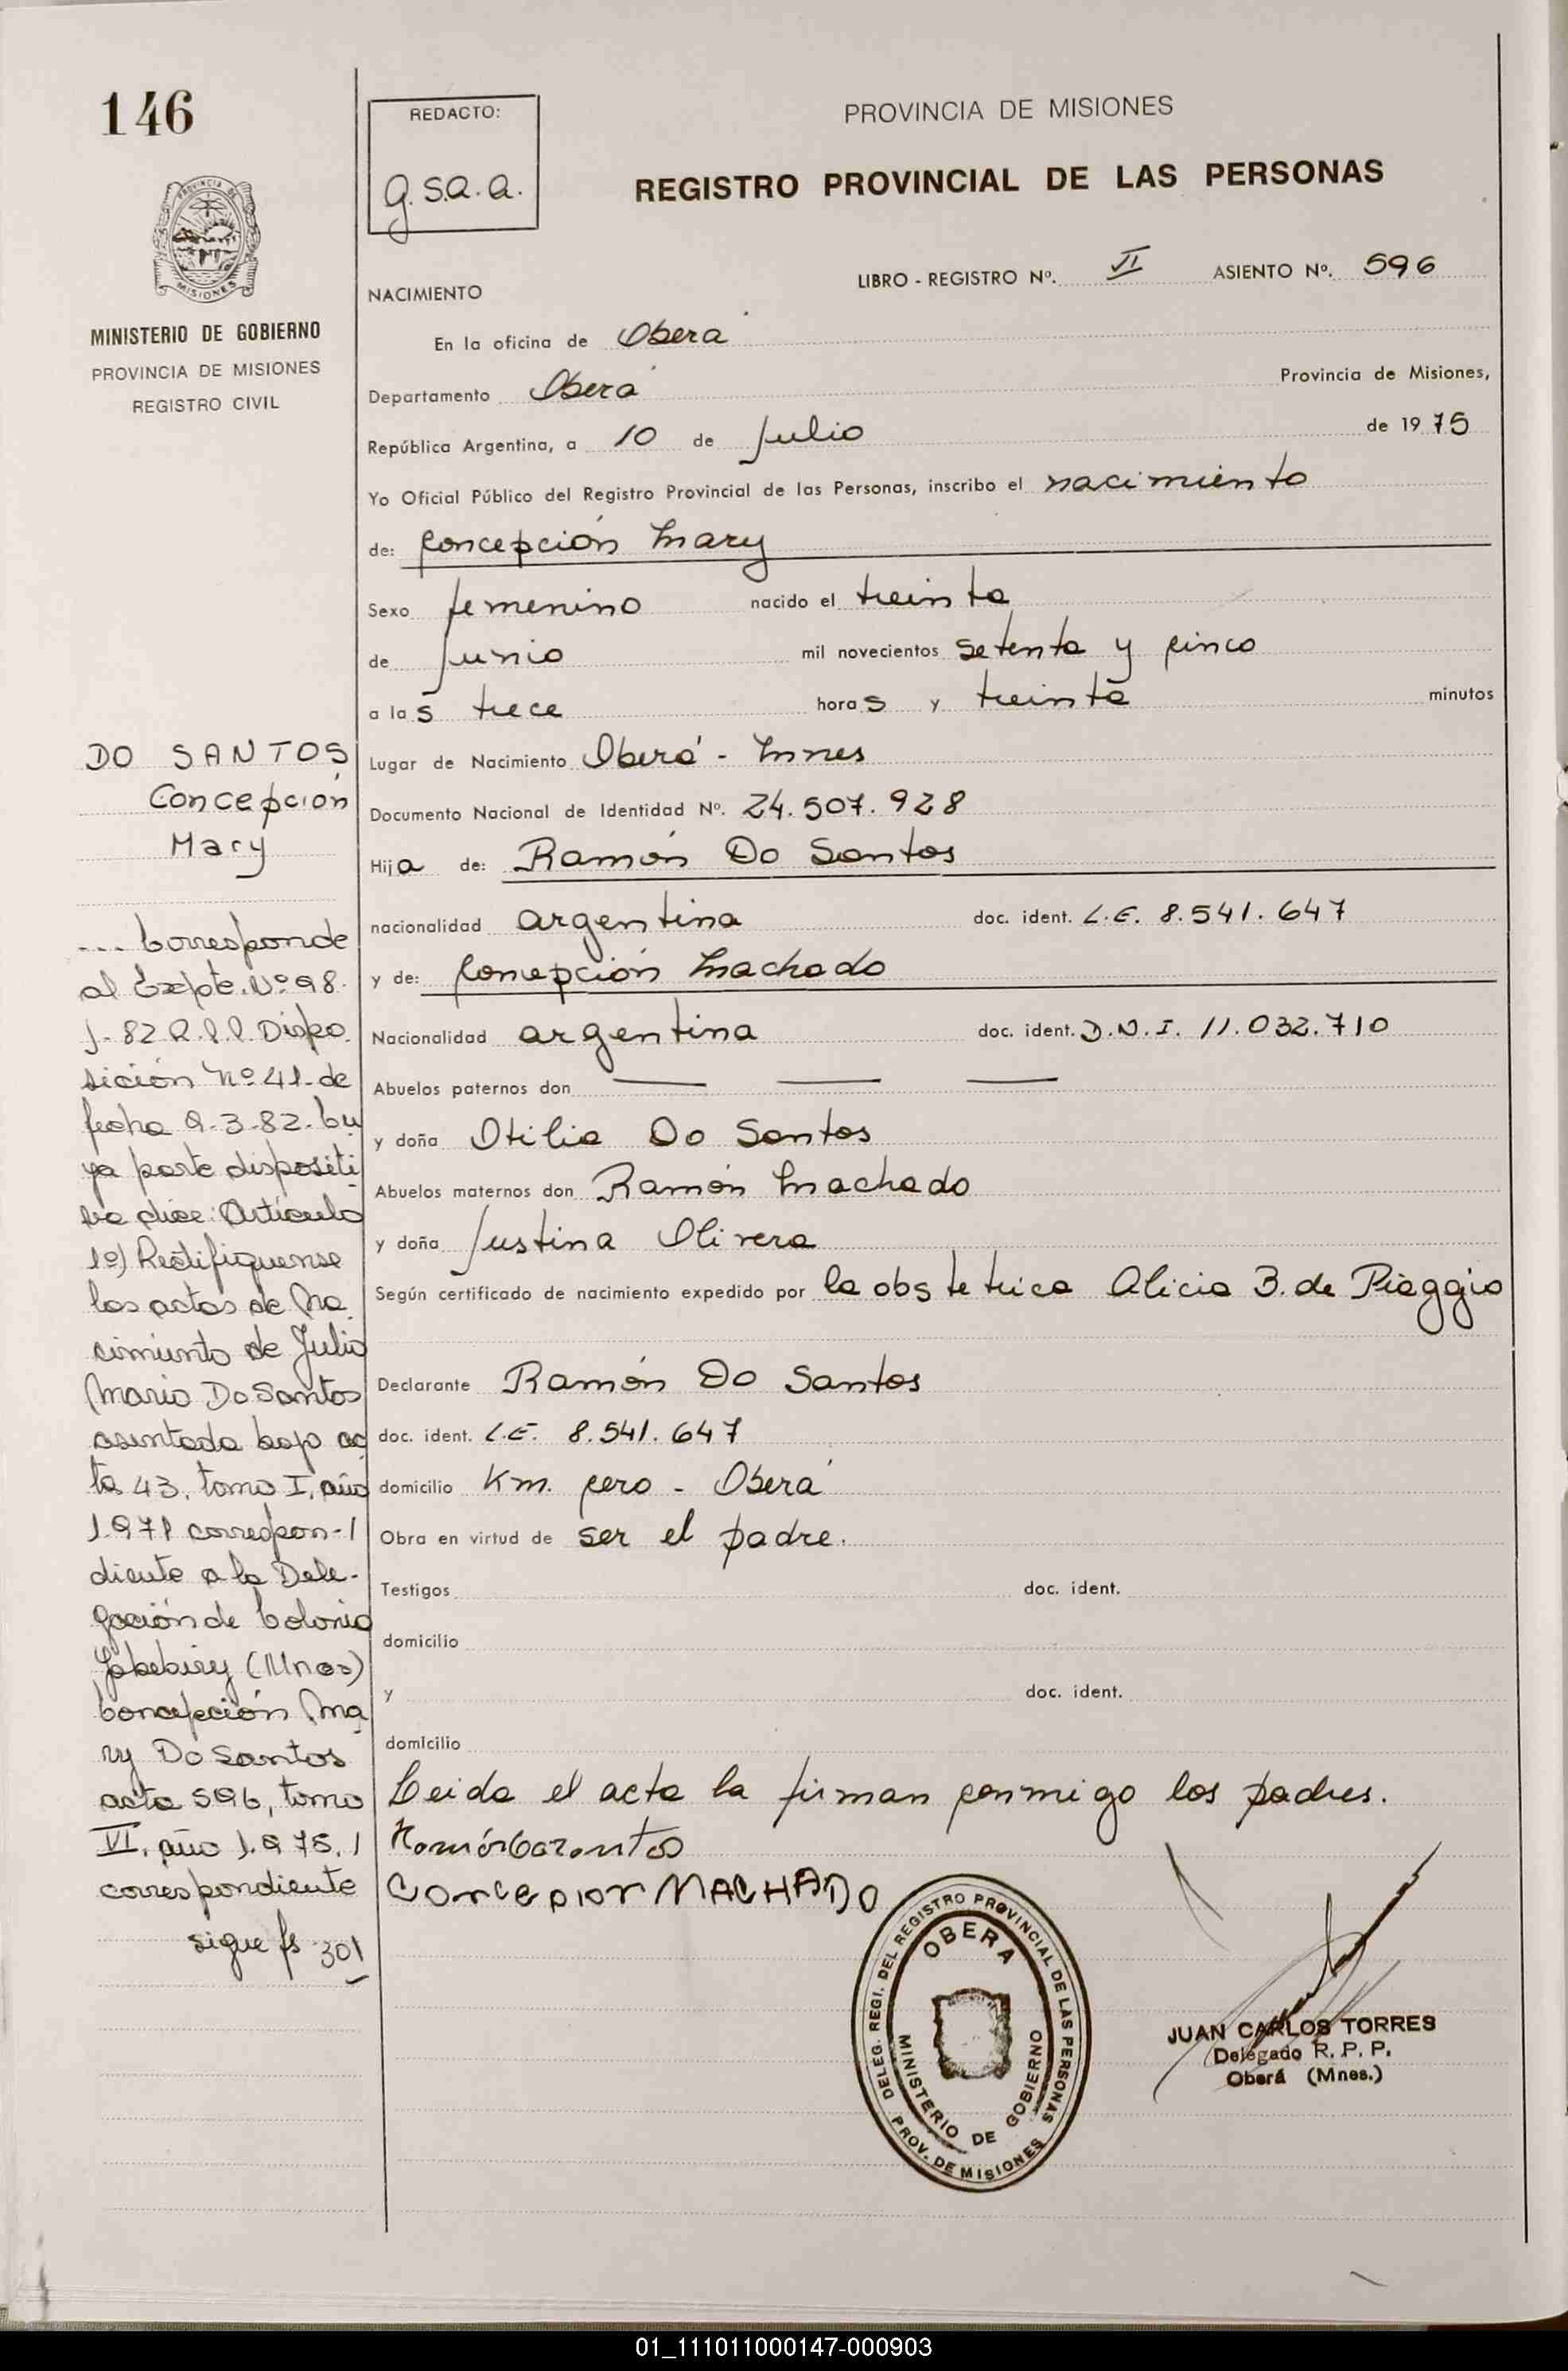 146
REDACTO:
g.s.a.a.
PROVINCIA DE MISIONES
REGISTRO PROVINCIAL DE LAS PERSONAS
PROVINCIA DE
MISIONES
MINISTERIO DE GOBIERNO
PROVINCIA DE MISIONES
REGISTRO CIVIL
LIBRO - REGISTRO Nº. VI ASIENTO Nº. 596
NACIMIENTO
En la oficina de Oberá
Departamento Oberá Provincia de Misiones,
República Argentina, a 10 de Julio de 1975
Yo Oficial Público del Registro Provincial de las Personas, inscribo el nacimiento
de: Concepción Mary
Sexo femenino nacido el treinta
de Junio mil novecientos setenta y cinco
a las trece horas y treinta minutos
Lugar de Nacimiento Oberá - Mnes
Documento Nacional de Identidad Nº. 24.507.928
Hija de: Ramón Do Santos
nacionalidad argentina doc. ident. L.E. 8.541.647
y de: Concepción Machado
Nacionalidad argentina doc. ident. D.N.I. 11.032.710
Abuelos paternos don — — —
y doña Otilia Do Santos
Abuelos maternos don Ramón Machado
y doña Justina Olivera
Según certificado de nacimiento expedido por la obstetrica Alicia B. de Piaggio
Declarante Ramón Do Santos
doc. ident. L.E. 8.541.647
domicilio Km. cero - Oberá
Obra en virtud de ser el padre.
Testigos doc. ident.
domicilio
y doc. ident.
domicilio
Leida el acta la firman conmigo los padres.
CONCEPION MACHADO
DO SANTOS
Concepción
Mary
... Corresponde
al Expte. Nº 98.
J-82 R.P.P. Dispo
sición Nº 41- de
fecha 9-3-82. Cu
ya parte dispositi
va dice: Artículo
1º) Rectifiquense
las actas de Na
cimiento de Julio
Mario Do Santos
asentada bajo ac
ta 43, tomo I, año
1971 correspon-
diente a la Dele-
gación de Colonia
Yabebiry (Mnes)
Concepción Ma
ry Do Santos
acta 596, tomo
VI, año 1.975,
correspondiente
sigue fs 301
DELEG. REGI. DEL REGISTRO PROVINCIAL DE LAS PERSONAS
PROV. DE MISIONES
OBERA
MINISTERIO DE GOBIERNO
JUAN CARLOS TORRES
Delegado R. P. P.
Oberá (Mnes.)
01_111011000147-000903